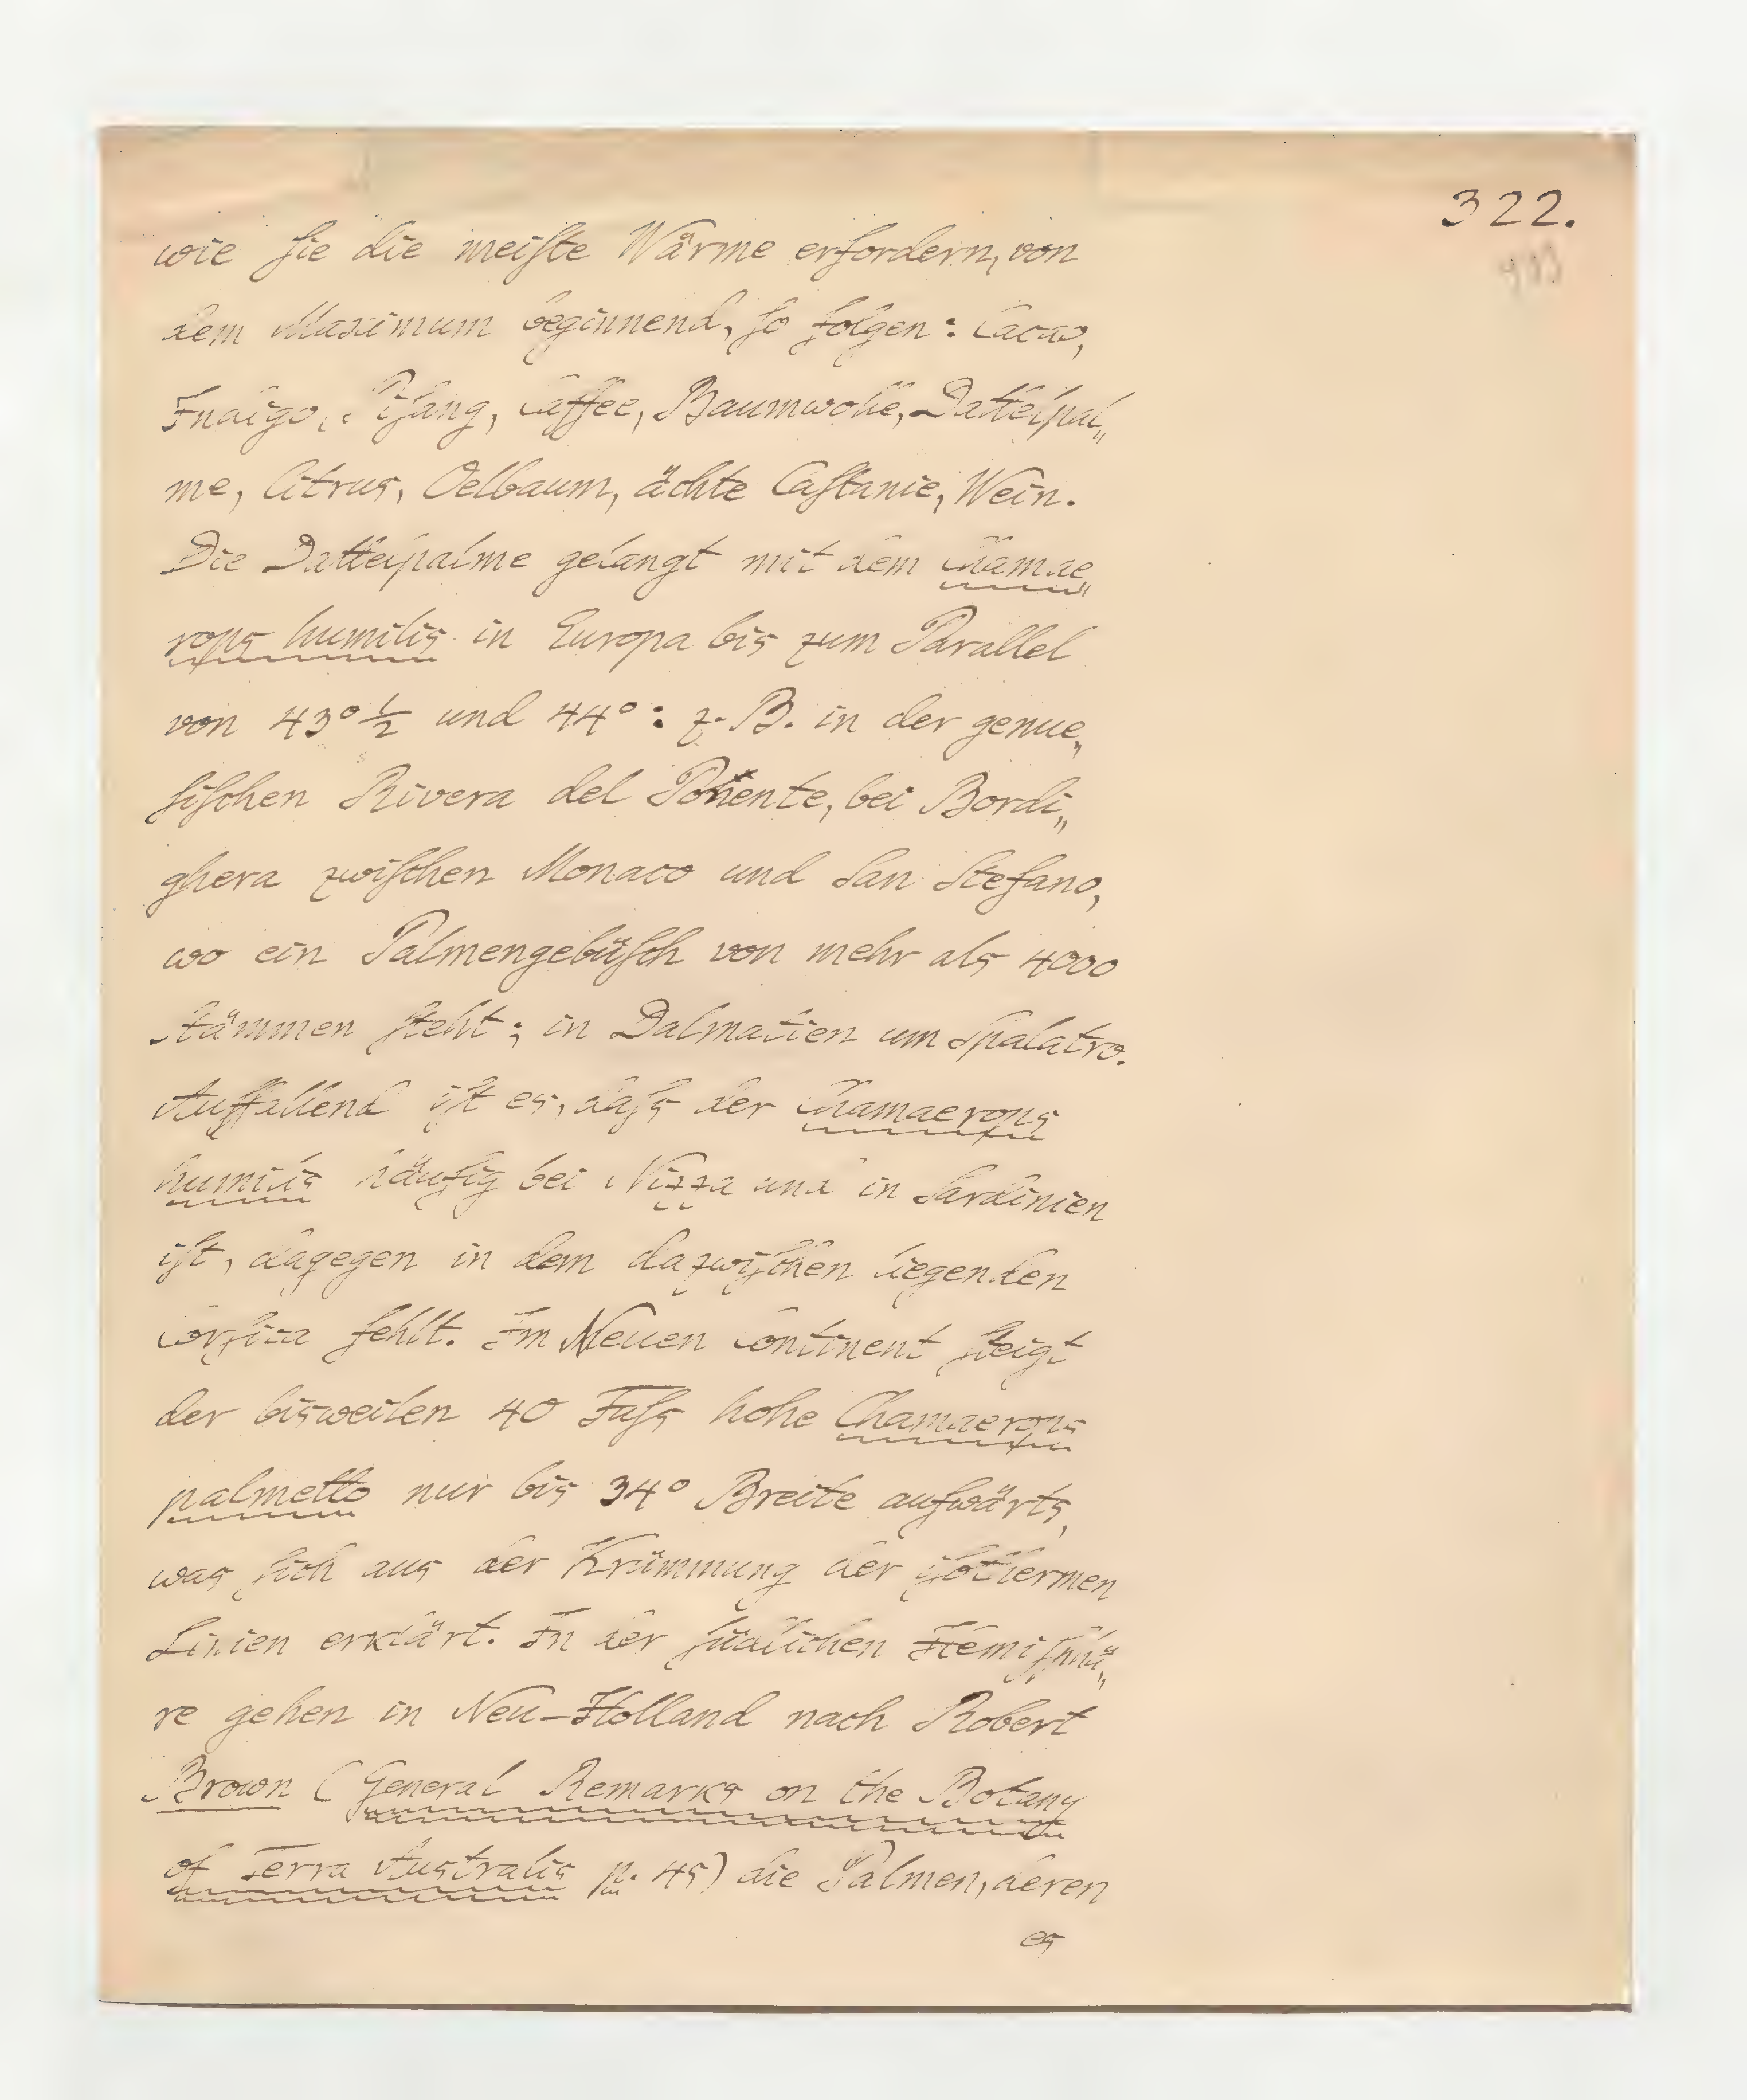 322.
wie ſie die meiſte Wärme erfordern, von
dem Maximum beginnend, ſo folgen: Cacao,
Indigo, Piſang, Caffee, Baumwolle, Dattelpal„
me, Citrus, Oelbaum, ächte Caſtanie, Wein.
Die Dattelpalme gelangt mit dem Chamae„
rops humilis in Europa bis zum Parallel
von 43° ½ und 44°: z. B. in der genue„
ſiſchen Rivera del Ponente, bei Bordi„
ghera zwiſchen Monaco und San Stefano,
wo ein Palmengebüſch von mehr als 4000
Stämmen ſteht; in Dalmatien um Spalatro.
Auffallend iſt es, daſs der Chamaerops
humilis häufig bei Nizza und in Sardinien
iſt, dagegen in dem dazwiſchen liegenden
Corſica fehlt. Im Neuen Continent ſteigt
der bisweilen 40 Fuſs hohe Chamaerops
palmetto nur bis 34° Breite aufwärts,
was ſich aus der Krümmung der iſothermen
Linien erklärt. In der ſüdlichen Hemiſphä„
re gehen in Neu-Holland nach Robert
Brown (General Remarks on the Botany
of Terra Australis p. 45) die Palmen, deren
es